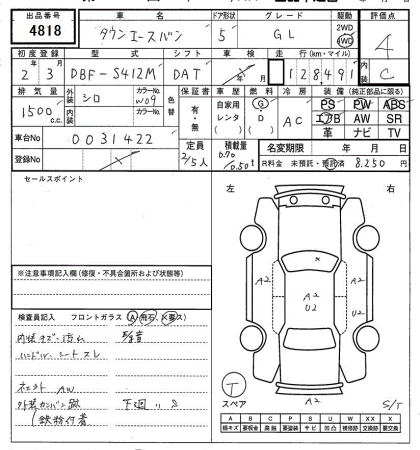 出品番号 車名 ドア形状 グレード 駆動 評価点
4818 タウンエースバン 5 GL 2WD 4WD 4
初度登録 型式 シフト 車検 走行(km・マイル) 内装
2 3 DBF-S412M DAT 128,491 C
排気量 外装 カラーNo. 色替 保証書 車歴 燃料 冷房 装備(純正部品に限る)
1500 c.c. シロ W09 有・無 自家用 レンタ ( ) G D ( ) AC PS PW ABS
内装 カラーNo. エアB AW SR
革 ナビ TV
車台No 0031422 定員 2/5人 積載量 0.70/0.50t 名変期限 年 月 日
登録No R料金 未預託・預託済 8.250 円
セールスポイント
左 右
※注意事項記入欄(修復・不具合箇所および状態等)
検査員記入 フロントガラス(A 飛石、X要ス)
内装キズ・汚れ
ハンドル、シートスレ
AW
下廻りS
A2
A2
U2
A2
U2
A2
T
スペア
S/T
A B C P S U W XX X
線キズ 要板金 腐蝕 要塗装 サビ 凹凸 補修跡 交換跡 要交換